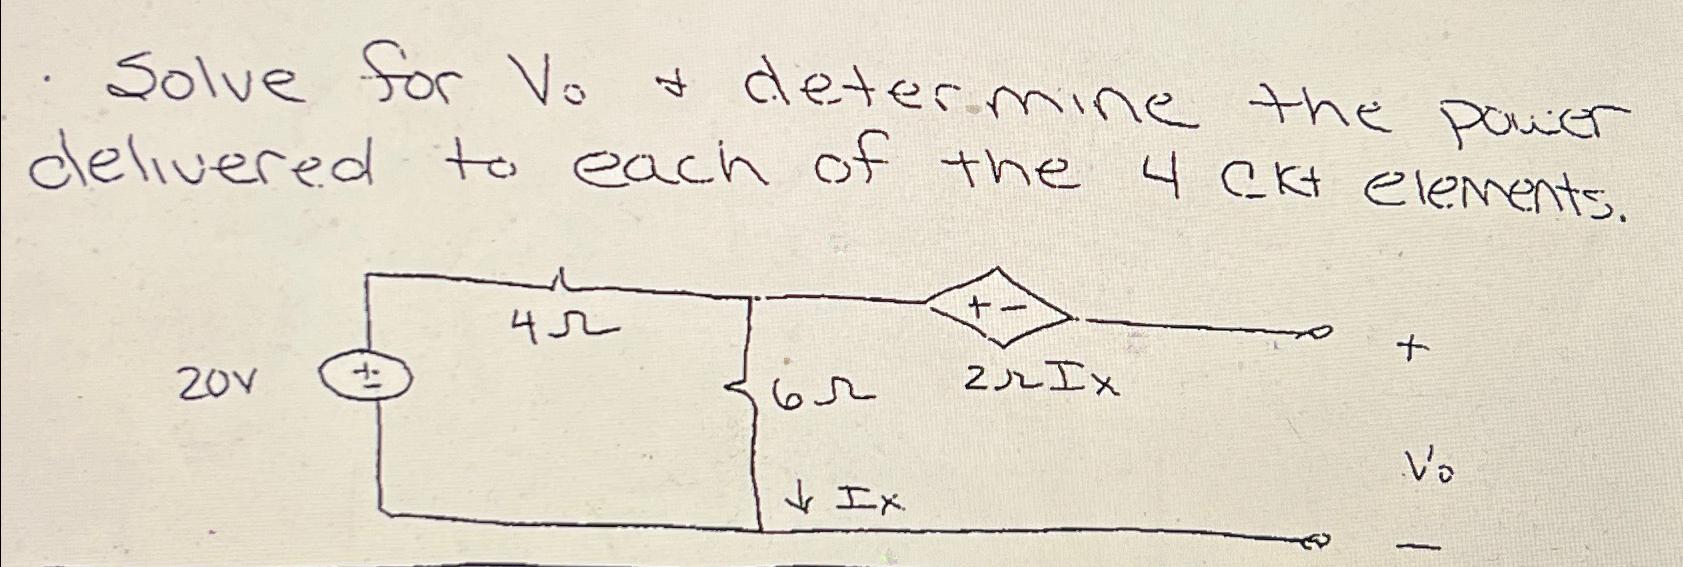 · Solve for Vo & determine the power
delivered to each of the 4 ckt elements.
4Ω
+ -
+
20V
+
-
6Ω
2Ω Ix
Vo
↓ Ix
-